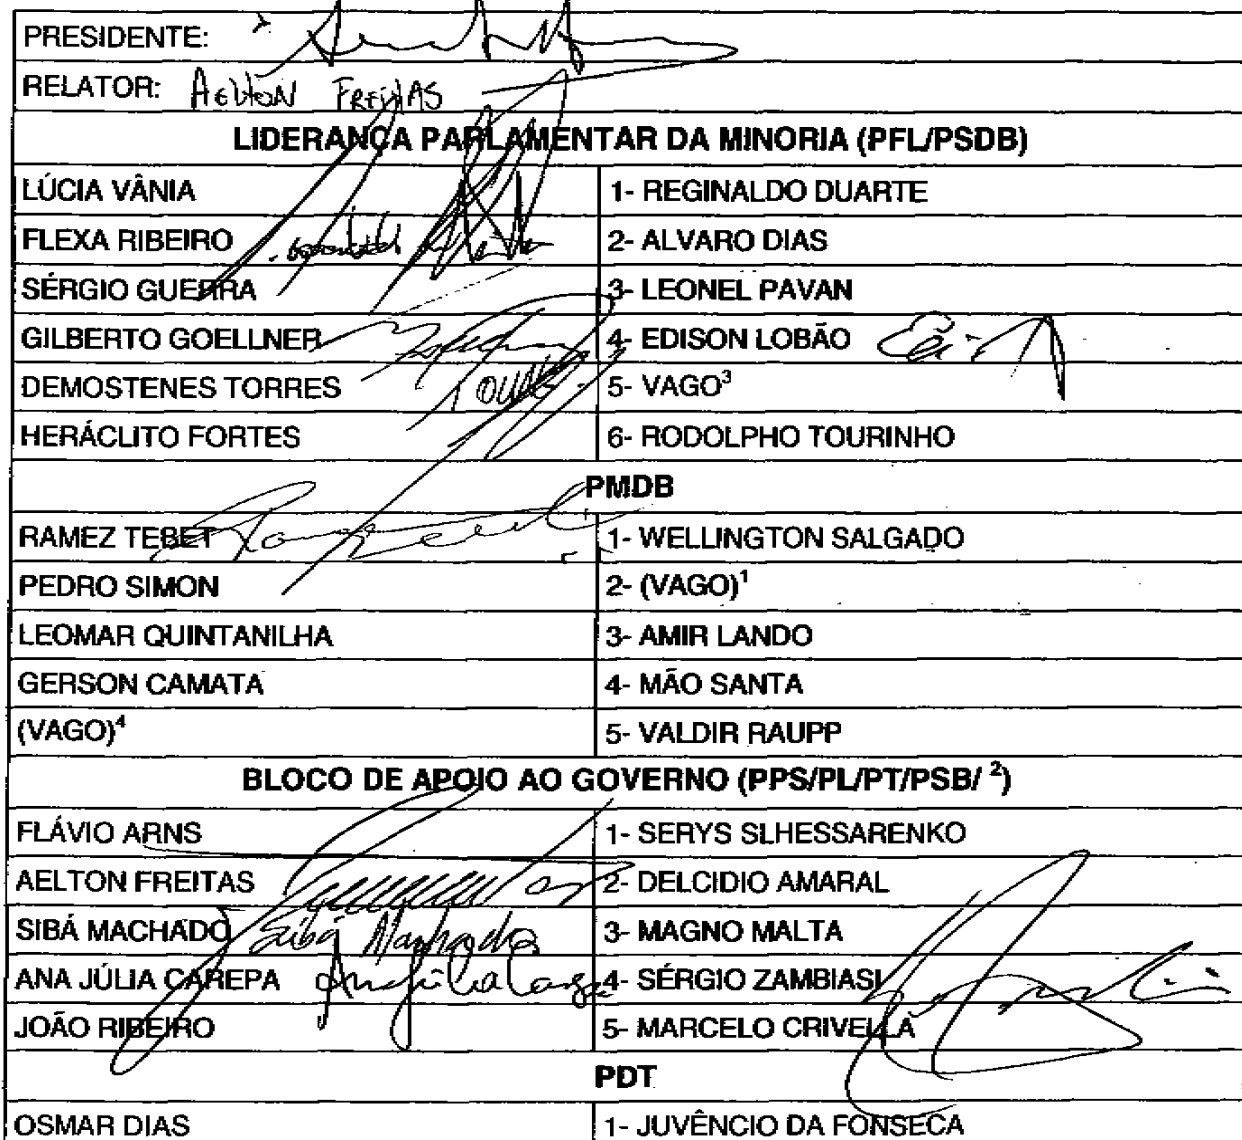 PRESIDENTE:
RELATOR: AELTON FREITAS
LIDERANÇA PARLAMENTAR DA MINORIA (PFL/PSDB)
LÚCIA VÂNIA 1- REGINALDO DUARTE
FLEXA RIBEIRO 2- ALVARO DIAS
SÉRGIO GUERRA 3- LEONEL PAVAN
GILBERTO GOELLNER 4- EDISON LOBÃO
DEMOSTENES TORRES 5- VAGO³
HERÁCLITO FORTES 6- RODOLPHO TOURINHO
PMDB
RAMEZ TEBET 1- WELLINGTON SALGADO
PEDRO SIMON 2- (VAGO)¹
LEOMAR QUINTANILHA 3- AMIR LANDO
GERSON CAMATA 4- MÃO SANTA
(VAGO)⁴ 5- VALDIR RAUPP
BLOCO DE APOIO AO GOVERNO (PPS/PL/PT/PSB/ ²)
FLÁVIO ARNS 1- SERYS SLHESSARENKO
AELTON FREITAS 2- DELCIDIO AMARAL
SIBÁ MACHADO Sibá Machado 3- MAGNO MALTA
ANA JÚLIA CAREPA 4- SÉRGIO ZAMBIASI
JOÃO RIBEIRO 5- MARCELO CRIVELLA
PDT
OSMAR DIAS 1- JUVÊNCIO DA FONSECA